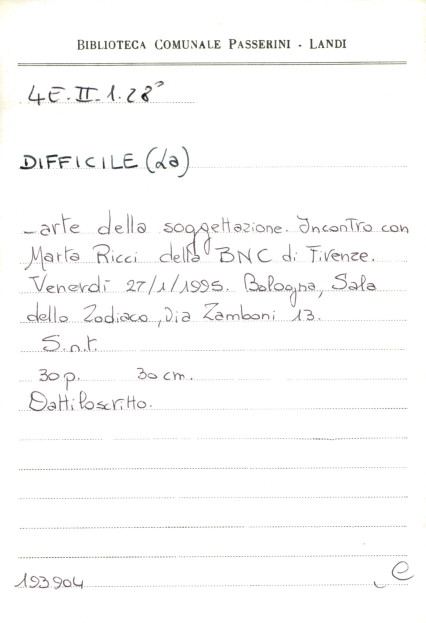 BIBLIOTECA COMUNALE PASSERINI - LANDI
4E.II.1.28°
DIFFICILE (La)
-arte della soggettazione. Incontro con
Marta Ricci della BNC di Firenze.
Venerdì 27/1/1995. Bologna, Sala
dello Zodiaco, via Zamboni 13.
S.n.t.
30 p. 30 cm.
Dattiloscritto.
193904 e